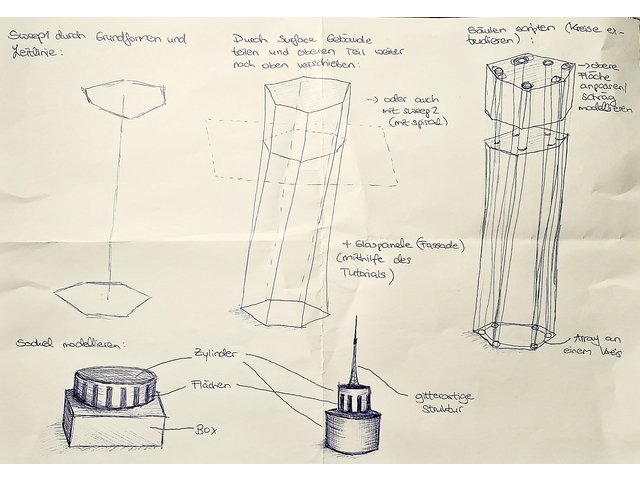 Sweep1 durch Grundformen und
Leitlinie:
Durch Surface Gebäude
teilen und oberen Teil weiter
nach oben verschieben:
→ oder auch
mit sweep2
(mit spiral)
+ Glaspanele (Fassade)
(mithilfe des
Tutorials)
Säulen scripten (Kreise ex-
trudieren):
→ obere
Fläche
anpassen/
schräg
modellieren
Array an
einem Kreis
Sockel modellieren:
Zylinder
Flächen
Box
gitterartige
Struktur